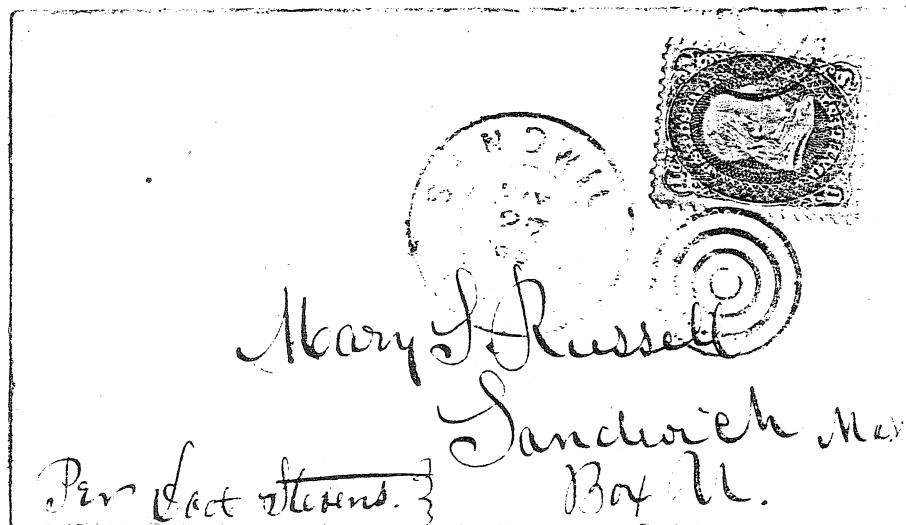 Mary S. Russell
Sandwich Mas
Box U.
Per Stevens.